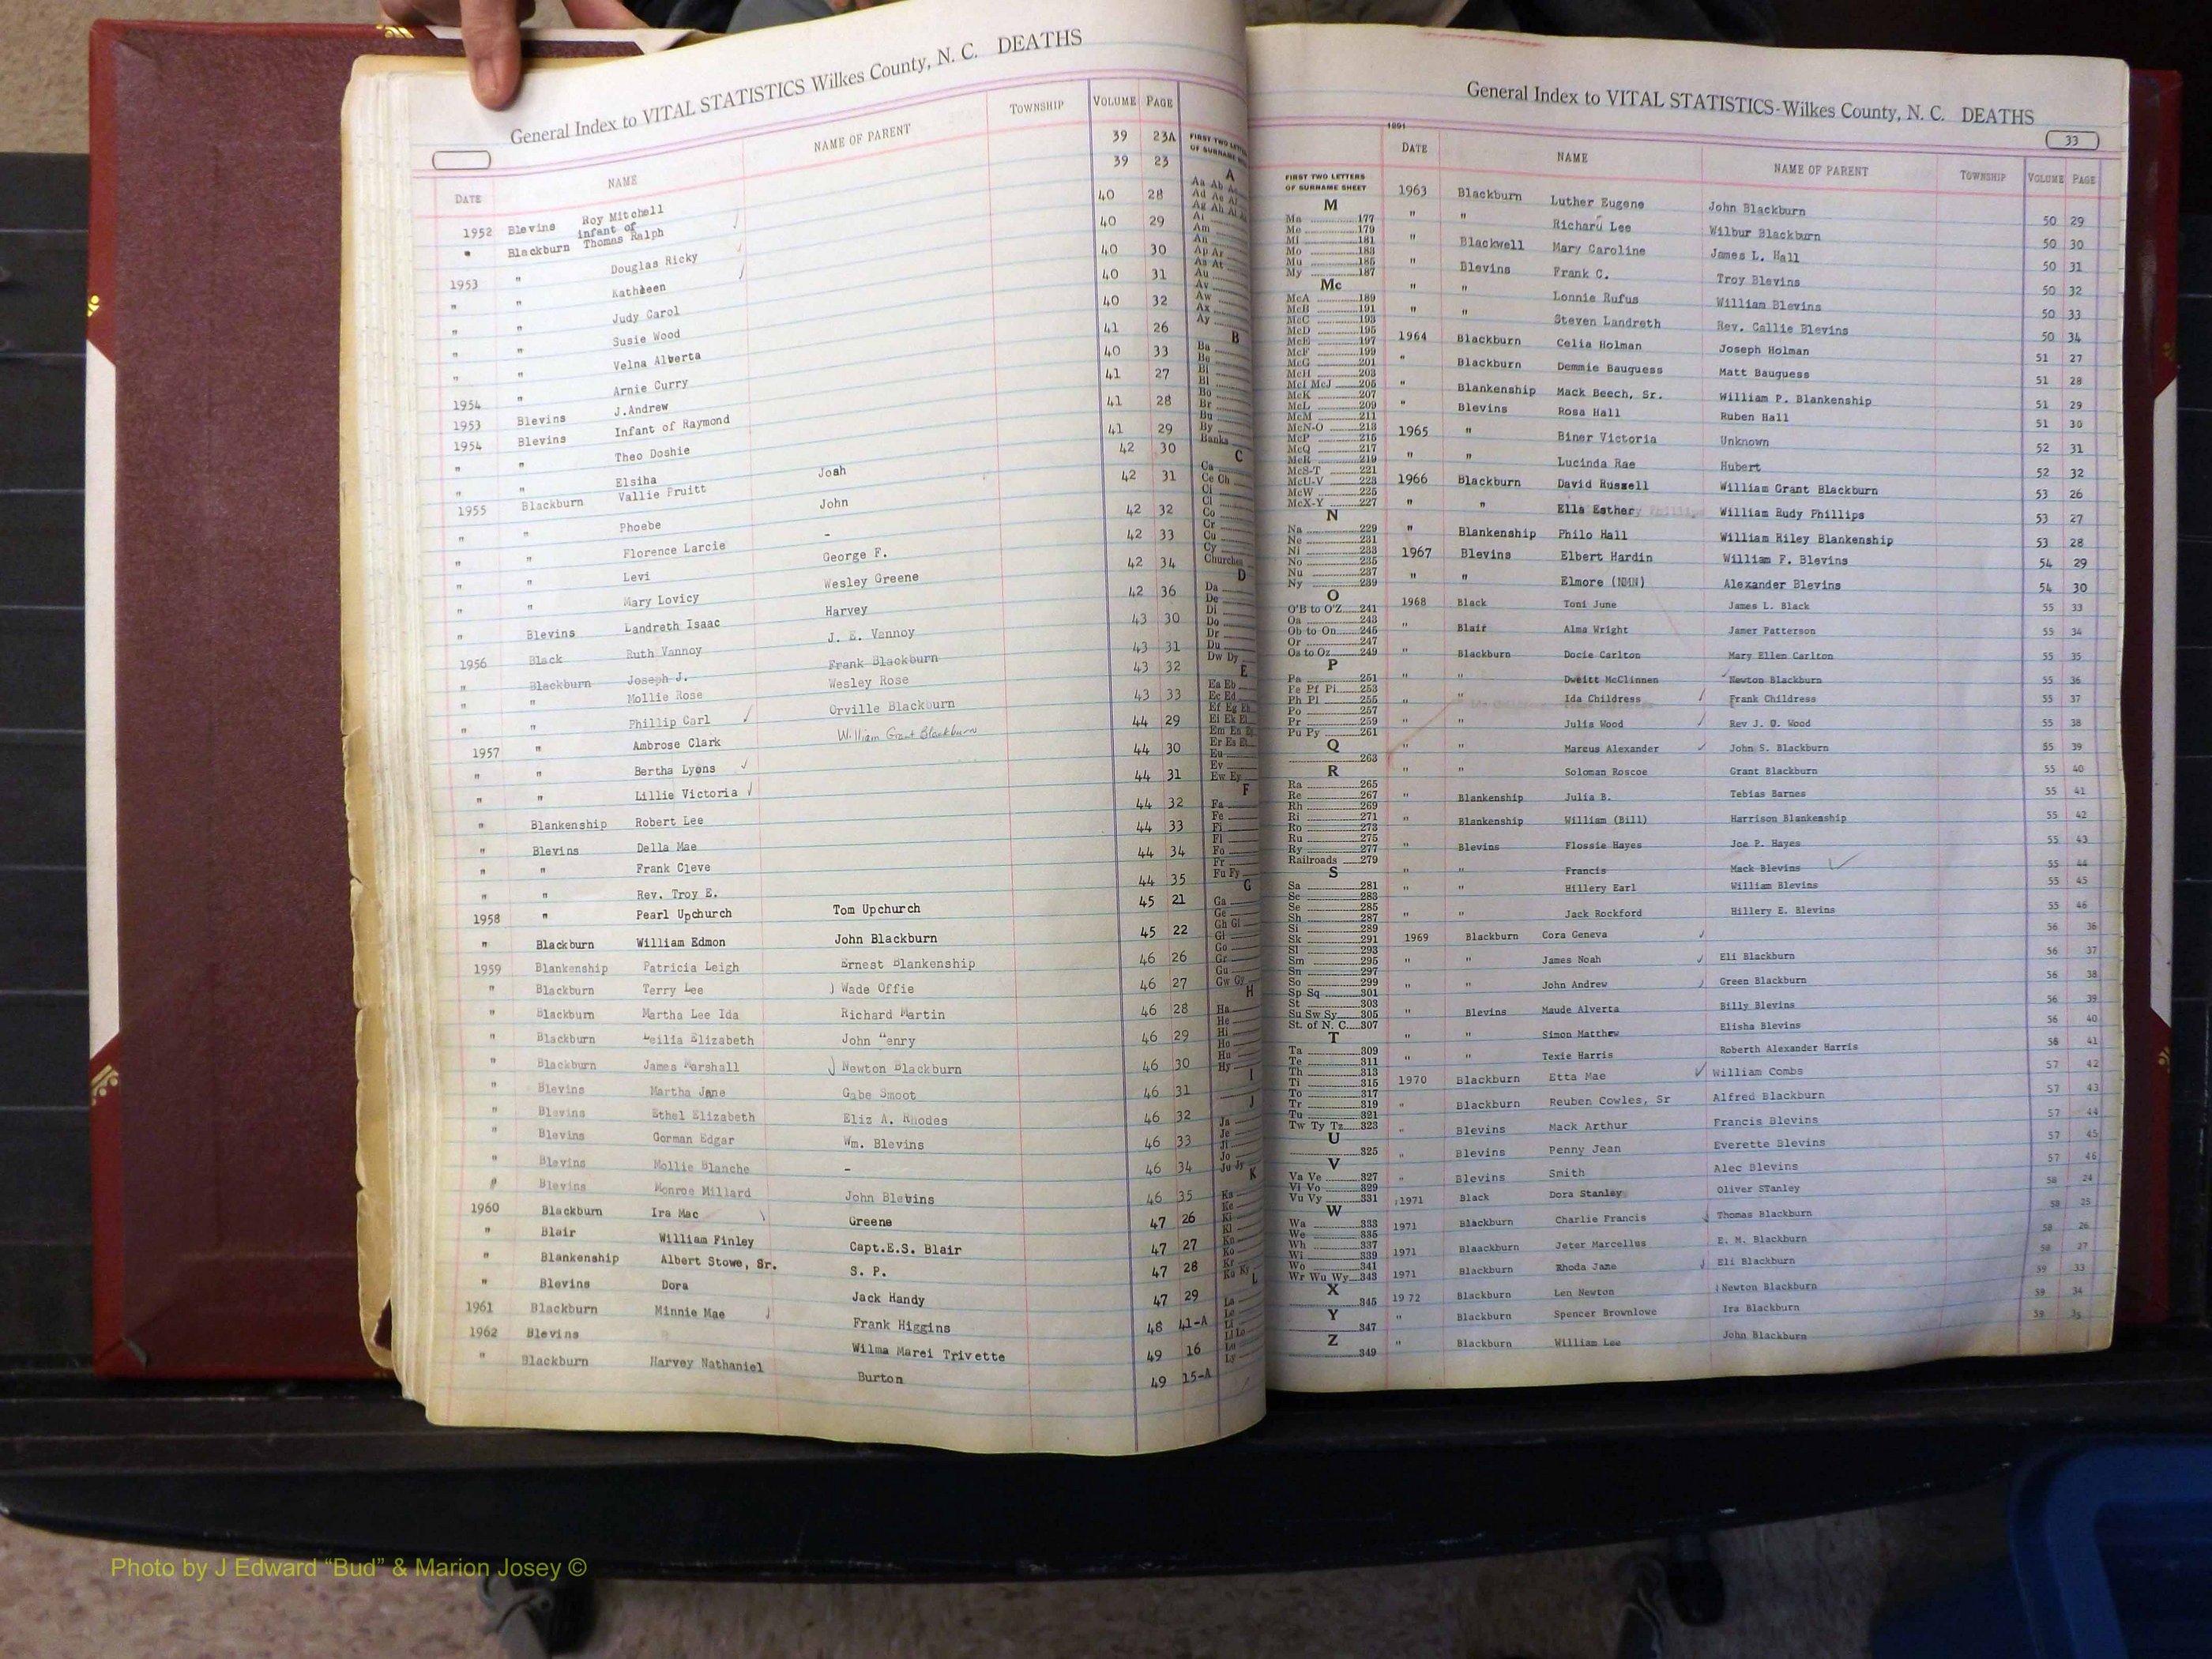 General Index to VITAL STATISTICS Wilkes County, N. C. DEATHS
DATE NAME NAME OF PARENT TOWNSHIP VOLUME PAGE
1952 Blevins Roy Mitchell 39 23A
" Blackburn infant of Thomas Ralph 39 23
1953 " Douglas Ricky 40 28
" " Kathleen 40 29
" " Judy Carol 40 30
" " Susie Wood 40 31
" " Velna Alberta 40 32
1954 " Arnie Curry 41 26
1953 Blevins J.Andrew 40 33
1954 Blevins Infant of Raymond 41 27
" " Theo Doshie 41 28
" " Elsiha Josh 41 29
1955 Blackburn Vallie Pruitt John 42 30
" " Phoebe - 42 31
" " Florence Larcie George F. 42 32
" " Levi Wesley Greene 42 33
" " Mary Lovicy Harvey 42 34
" Blevins Landreth Isaac J. E. Vannoy 42 36
1956 Black Ruth Vannoy 43 30
" Blackburn Joseph J. Frank Blackburn 43 31
" " Mollie Rose Wesley Rose 43 32
" " Phillip Carl Orville Blackburn 43 33
1957 " Ambrose Clark William Grant Blackburn 44 29
" " Bertha Lyons 44 30
" " Lillie Victoria 44 31
" Blankenship Robert Lee 44 32
" Blevins Della Mae 44 33
" " Frank Cleve 44 34
" " Rev. Troy E. 44 35
1958 " Pearl Upchurch Tom Upchurch 45 21
" Blackburn William Edmon John Blackburn 45 22
1959 Blankenship Patricia Leigh Ernest Blankenship 46 26
" Blackburn Terry Lee Wade Offie 46 27
" Blackburn Martha Lee Ida Richard Martin 46 28
" Blackburn Leilia Elizabeth John Henry 46 29
" Blackburn James Marshall Newton Blackburn 46 30
" Blevins Martha Jane Gabe Smoot 46 31
" Blevins Ethel Elizabeth Eliz A. Rhodes 46 32
" Blevins Gorman Edgar Wm. Blevins 46 33
" Blevins Mollie Blanche - 46 34
" Blevins Monroe Millard John Blevins 46 35
1960 Blackburn Ira Mac Greene 47 26
" Blair William Finley Capt.E.S. Blair 47 27
" Blankenship Albert Stowe, Sr. S. P. 47 28
" Blevins Dora Jack Handy 47 29
1961 Blackburn Minnie Mae Frank Higgins 48 41-A
1962 Blevins Wilma Marei Trivette 49 16
" Blackburn Harvey Nathaniel Burton 49 15-A
General Index to VITAL STATISTICS-Wilkes County, N. C. DEATHS
33
FIRST TWO LETTERS
OF SURNAME SHEET
M
Ma 177
Me 179
Mi 181
Mo 183
Mu 185
My 187
Mc
McA 189
McB 191
McC 193
McD 195
McE 197
McF 199
McG 201
McH 203
McI McJ 205
McK 207
McL 209
McM 211
McN-O 213
McP 215
McQ 217
McR 219
McS-T 221
McU-V 223
McW 225
McX-Y 227
N
Na 229
Ne 231
Ni 233
No 235
Nu 237
Ny 239
O
O'B to O'Z 241
Oa 243
Ob to On 245
Or 247
Os to Oz 249
P
Pa 251
Pe Pf Pi 253
Ph Pl 255
Po 257
Pr 259
Pu Py 261
Q
263
R
Ra 265
Re 267
Rh 269
Ri 271
Ro 273
Ru 275
Ry 277
Railroads 279
S
Sa 281
Sc 283
Se 285
Sh 287
Si 289
Sk 291
Sl 293
Sm 295
Sn 297
So 299
Sp Sq 301
St 303
Su Sw Sy 305
St. of N. C. 307
T
Ta 309
Te 311
Th 313
Ti 315
To 317
Tr 319
Tu 321
Tw Ty Tz 323
U
325
V
Va Ve 327
Vi Vo 329
Vu Vy 331
W
Wa 333
We 335
Wh 337
Wi 339
Wo 341
Wr Wu Wy 343
X
345
Y
347
Z
349
DATE NAME NAME OF PARENT TOWNSHIP VOLUME PAGE
1963 Blackburn Luther Eugene John Blackburn 50 29
" " Richard Lee Wilbur Blackburn 50 30
" Blackwell Mary Caroline James L. Hall 50 31
" Blevins Frank C. Troy Blevins 50 32
" " Lonnie Rufus William Blevins 50 33
" " Steven Landreth Rev. Callie Blevins 50 34
1964 Blackburn Celia Holman Joseph Holman 51 27
" Blackburn Demmie Bauguess Matt Bauguess 51 28
" Blankenship Mack Beech, Sr. William P. Blankenship 51 29
" Blevins Rosa Hall Ruben Hall 51 30
1965 " Biner Victoria Unknown 52 31
" " Lucinda Rae Hubert 52 32
1966 Blackburn David Russell William Grant Blackburn 53 26
" " Ella Esther William Rudy Phillips 53 27
" Blankenship Philo Hall William Riley Blankenship 53 28
1967 Blevins Elbert Hardin William F. Blevins 54 29
" " Elmore (NMN) Alexander Blevins 54 30
1968 Black Toni June James L. Black 55 33
" Blair Alma Wright Jamer Patterson 55 34
" Blackburn Docie Carlton Mary Ellen Carlton 55 35
" " Dweitt McClinnen Newton Blackburn 55 36
" " Ida Childress Frank Childress 55 37
" " Julia Wood Rev J. O. Wood 55 38
" " Marcus Alexander John S. Blackburn 55 39
" " Soloman Roscoe Grant Blackburn 55 40
" Blankenship Julia B. Tebias Barnes 55 41
" Blankenship William (Bill) Harrison Blankenship 55 42
" Blevins Flossie Hayes Joe P. Hayes 55 43
" " Francis Mack Blevins 55 44
" " Hillery Earl William Blevins 55 45
" " Jack Rockford Hillery E. Blevins 55 46
1969 Blackburn Cora Geneva 56 36
" " James Noah Eli Blackburn 56 37
" " John Andrew Green Blackburn 56 38
" Blevins Maude Alverta Billy Blevins 56 39
" " Simon Matthew Elisha Blevins 56 40
" " Texie Harris Roberth Alexander Harris 56 41
1970 Blackburn Etta Mae William Combs 57 42
" Blackburn Reuben Cowles, Sr Alfred Blackburn 57 43
" Blevins Mack Arthur Francis Blevins 57 44
" Blevins Penny Jean Everette Blevins 57 45
" Blevins Smith Alec Blevins 57 46
1971 Black Dora Stanley Oliver STanley 58 24
1971 Blackburn Charlie Francis Thomas Blackburn 58 25
1971 Blaackburn Jeter Marcellus E. M. Blackburn 58 26
1971 Blackburn Rhoda Jane Eli Blackburn 58 27
19 72 Blackburn Len Newton Newton Blackburn 59 33
" Blackburn Spencer Brownlowe Ira Blackburn 59 34
" Blackburn William Lee John Blackburn 59 35
Photo by J Edward “Bud” & Marion Josey ©